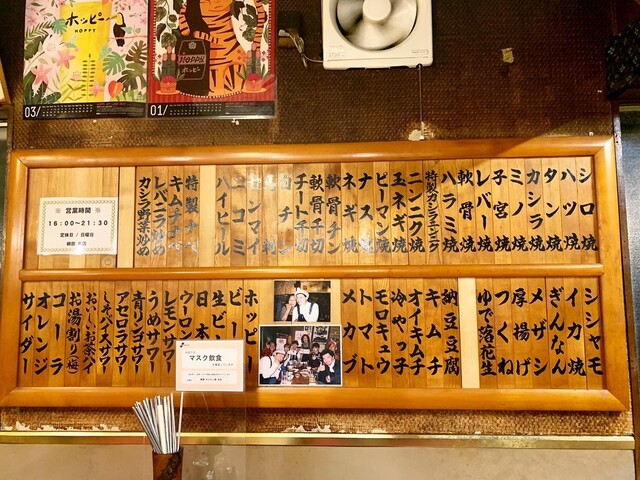 ホッピー
HOPPY
03/
01/
HOPPY
ホッピー
シロ焼
ハツ焼
タン焼
カシラ焼
ミノ焼
子宮焼
レバー焼
軟骨焼
ハラミ焼
特製カシラニンニク
ニンニク焼
玉ネギ焼
ピーマン焼
ナス焼
ネギ焼
軟骨チン
軟骨千切
チート千切
コミ
ハイヒール
特製ナベ
キムチナベ
レバニラ炒め
カシラ野菜炒め
営業時間
16:00〜21:30
定休日/日曜日
シシャモ
イカ焼
ぎんなん
メザシ
厚揚げ
つくね
ゆで落花生
納豆豆腐
キムチ
オイキムチ
冷やっ子
モロキュウ
トマト
メカブ
ホッピー
ビール
生ビール
日本酒
ウーロン
レモンサワー
うめサワー
青リンゴサワー
アセロラサワー
しそバイスサワー
おいしいお茶ハイ
お湯割り(梅)
コーラ
オレンジ
サイダー
マスク飲食